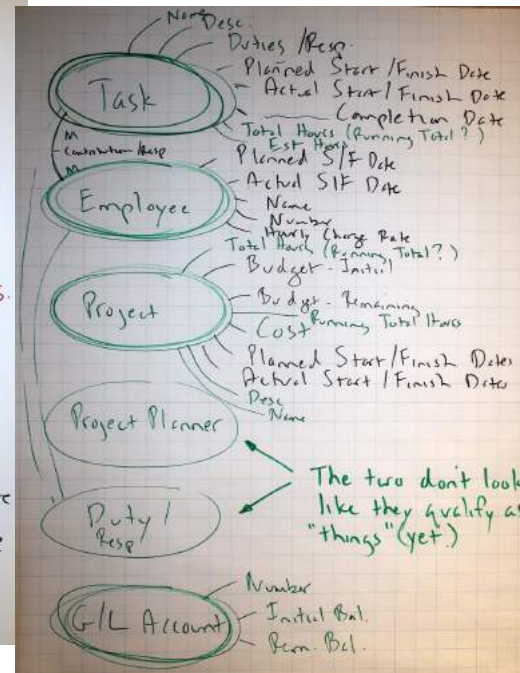 Name
Desc.
Duties / Resp.
Planned Start / Finish Date
Task
Actual Start / Finish Date
Completion Date
Total Hours (Running Total?)
Est Hours
M
Contribution / Resp
M
Planned S/F Date
Actual S/F Date
Employee
Name
Number
Hourly Charge Rate
Total Hours (Running Total?)
Budget - Initial
s.
Project
Budget - Remaining
Running Total Hours
Cost
Planned Start / Finish Dates
Actual Start / Finish Dates
Desc
Name
Project Planner
The two don't look
like they qualify as
"things" (yet.)
Duty /
Resp
Number
G/L Account
Initial Bal.
Rem. Bal.